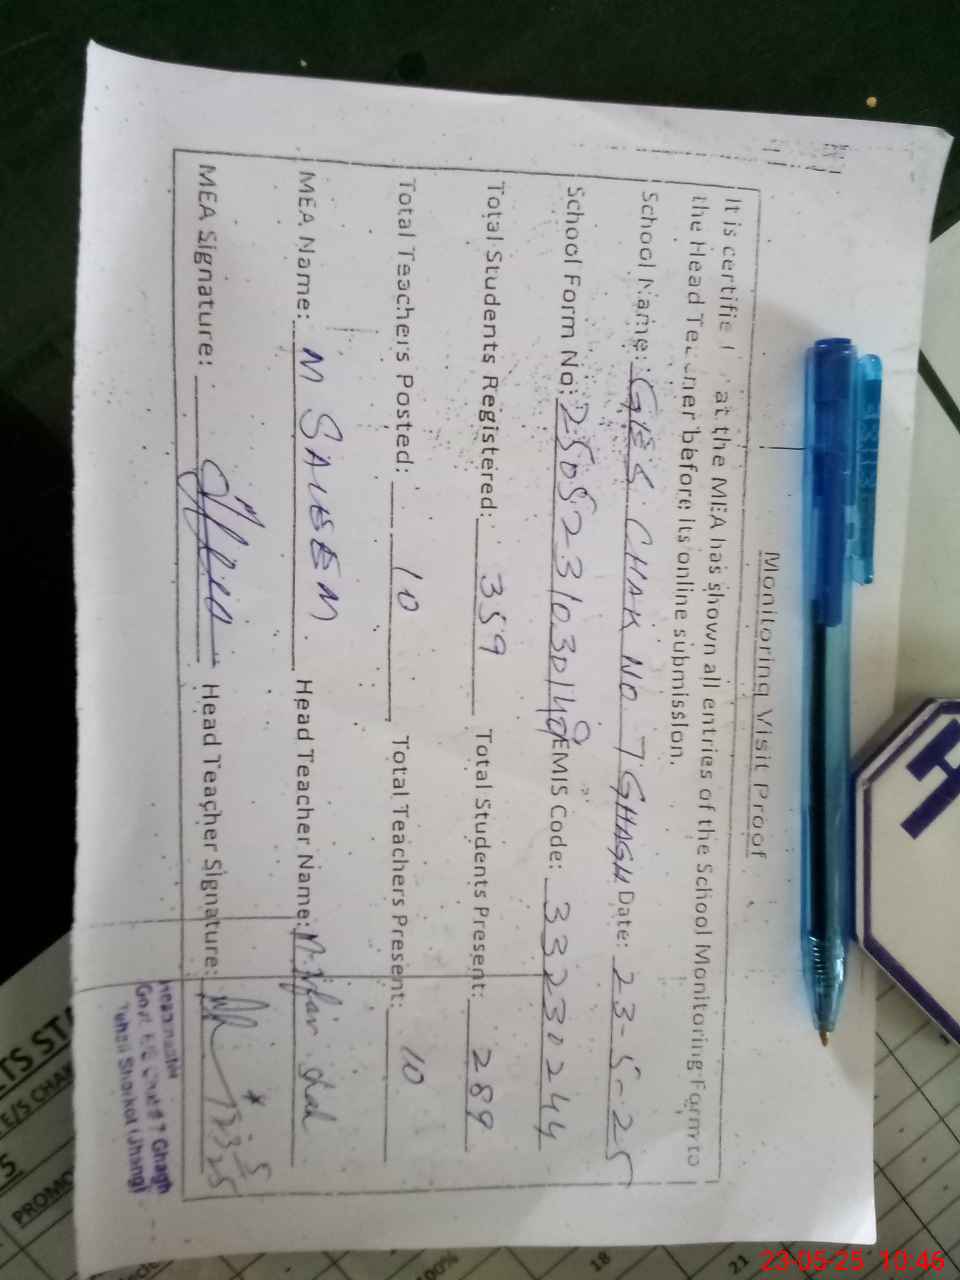 Monitoring Visit Proof
It is certifie at the MEA has shown all entries of the School Monitoring Form to
the Head Teacher before its online submission.
School Name: GES CHAK NO 7 GHAGH Date: 23-5-25
School Form No: EMIS Code: 33230244
Total Students Registered: 359 Total Students Present: 289
Total Teachers Posted: 10 Total Teachers Present: 10
MEA Name: M SALEEM Head Teacher Name: Shah
MEA Signature: Head Teacher Signature:
Headmaster
Govt. E/S Chak # 7 Ghagh
Tehsil Shorkot (Jhang)
H
ETS STA
E/S CHAK
PROMO
100%
18
21
23-05-25 10:46